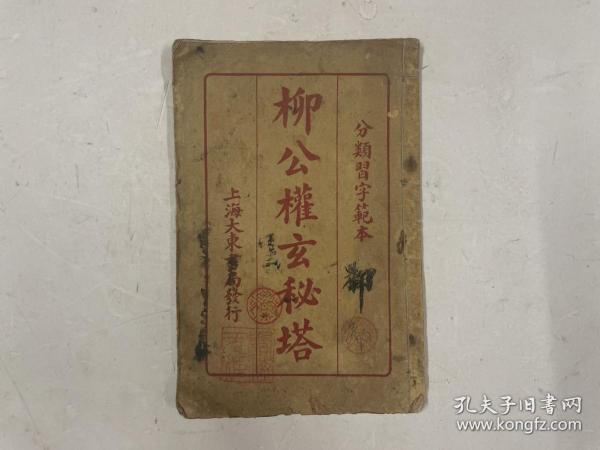 分類習字範本
柳公權玄秘塔
上海大東書局發行
孔夫子旧书网
www.kongfz.com